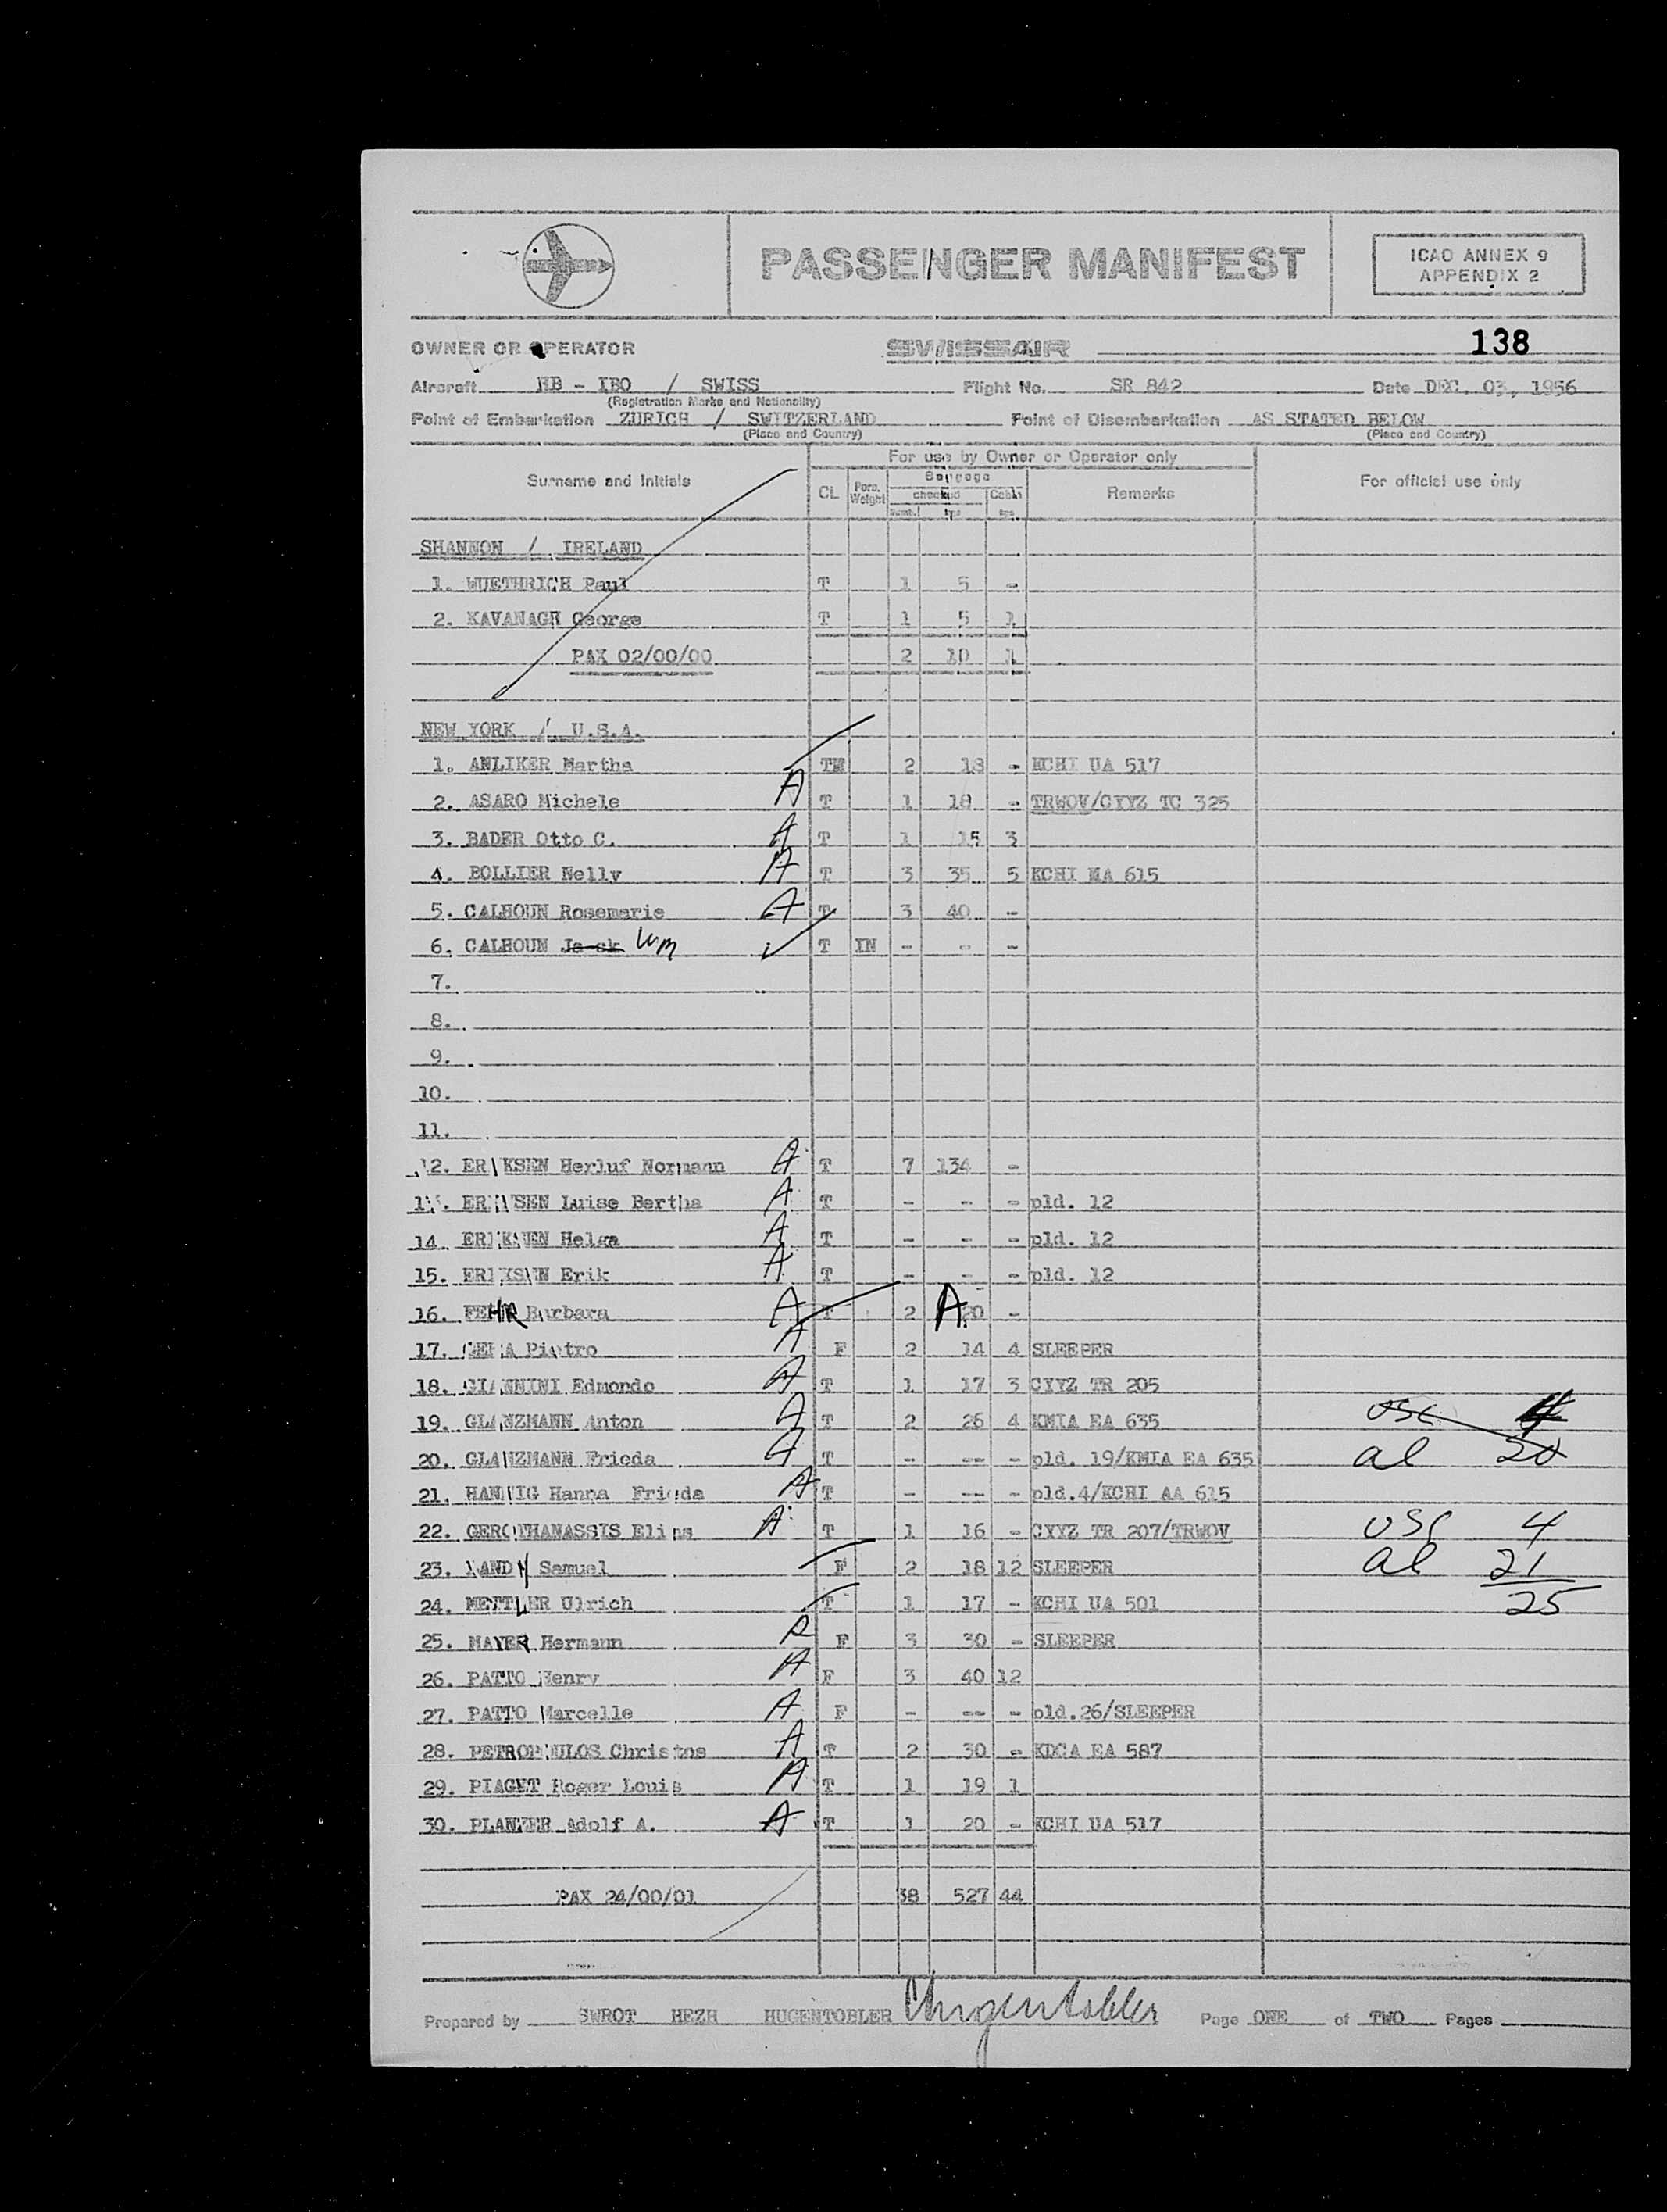 PASSENGER MANIFEST
ICAO ANNEX 9
APPENDIX 2
OWNER OR OPERATOR SWISSAIR 138
Aircraft HB - IBO / SWISS Flight No. SR 842 Date DEC. 03, 1956
(Registration Marks and Nationality)
Point of Embarkation ZURICH / SWITZERLAND Point of Disembarkation AS STATED BELOW
(Place and Country) (Place and Country)
For use by Owner or Operator only
Surname and Initials CL Pers. Weight Baggage checked Cabin Remarks For official use only
Numb. kgs kgs
SHANNON / IRELAND
1. WUETHRICH Paul T 1 5 -
2. KAVANAGH George T 1 5 1
PAX 02/00/00 2 10 1
NEW YORK / U.S.A.
1. ANLIKER Martha TW 2 18 - KCHI UA 517
2. ASARO Michele A T 1 18 - TRWOV/CYYZ TC 325
3. BADER Otto C. A T 1 15 3
4. BOLLIER Nelly A T 3 35 5 KCHI MA 615
5. CALHOUN Rosemarie A T 3 40 -
6. CALHOUN Jack Wm T IN - - -
7.
8.
9.
10.
11.
12. ERIKSEN Herluf Normann A T 7 134 -
13. ERIKSEN Luise Bertha A T - - - pld. 12
14 ERIKSEN Helga A T - - - pld. 12
15. ERIKSEN Erik A T - - - pld. 12
16. FEHR Barbara A T 2 A 20 -
17. Pietro A F 2 14 4 SLEEPER
18. GIANNINI Edmondo A T 1 17 3 CYYZ TR 205
19. GLANZMANN Anton A T 2 26 4 KMIA EA 635 USC 4
20. GLANZMANN Frieda A T - -- - pld. 19/KMIA EA 635 al 20
21. HANNIG Hanna Frieda A T - -- - pld.4/KCHI AA 615
22. GEROTHANASSIS Elias A T 1 16 - CYYZ TR 207/TRWOV USC 4
23. Samuel F 2 18 12 SLEEPER al 21
24. METTLER Ulrich T 1 17 - KCHI UA 501 25
25. MAYER Hermann A F 3 30 - SLEEPER
26. PATTO Henry A F 3 40 12
27. PATTO Marcelle A F - -- - pld.26/SLEEPER
28. PETROPOULOS Christos A T 2 30 - KDCA EA 587
29. PIAGET Roger Louis A T 1 19 1
30. PLANZER Adolf A. A T 1 20 - KCHI UA 517
PAX 24/00/01 38 527 44
Prepared by SWROT HEZH HUGENTOBLER Hugentobler Page ONE of TWO Pages